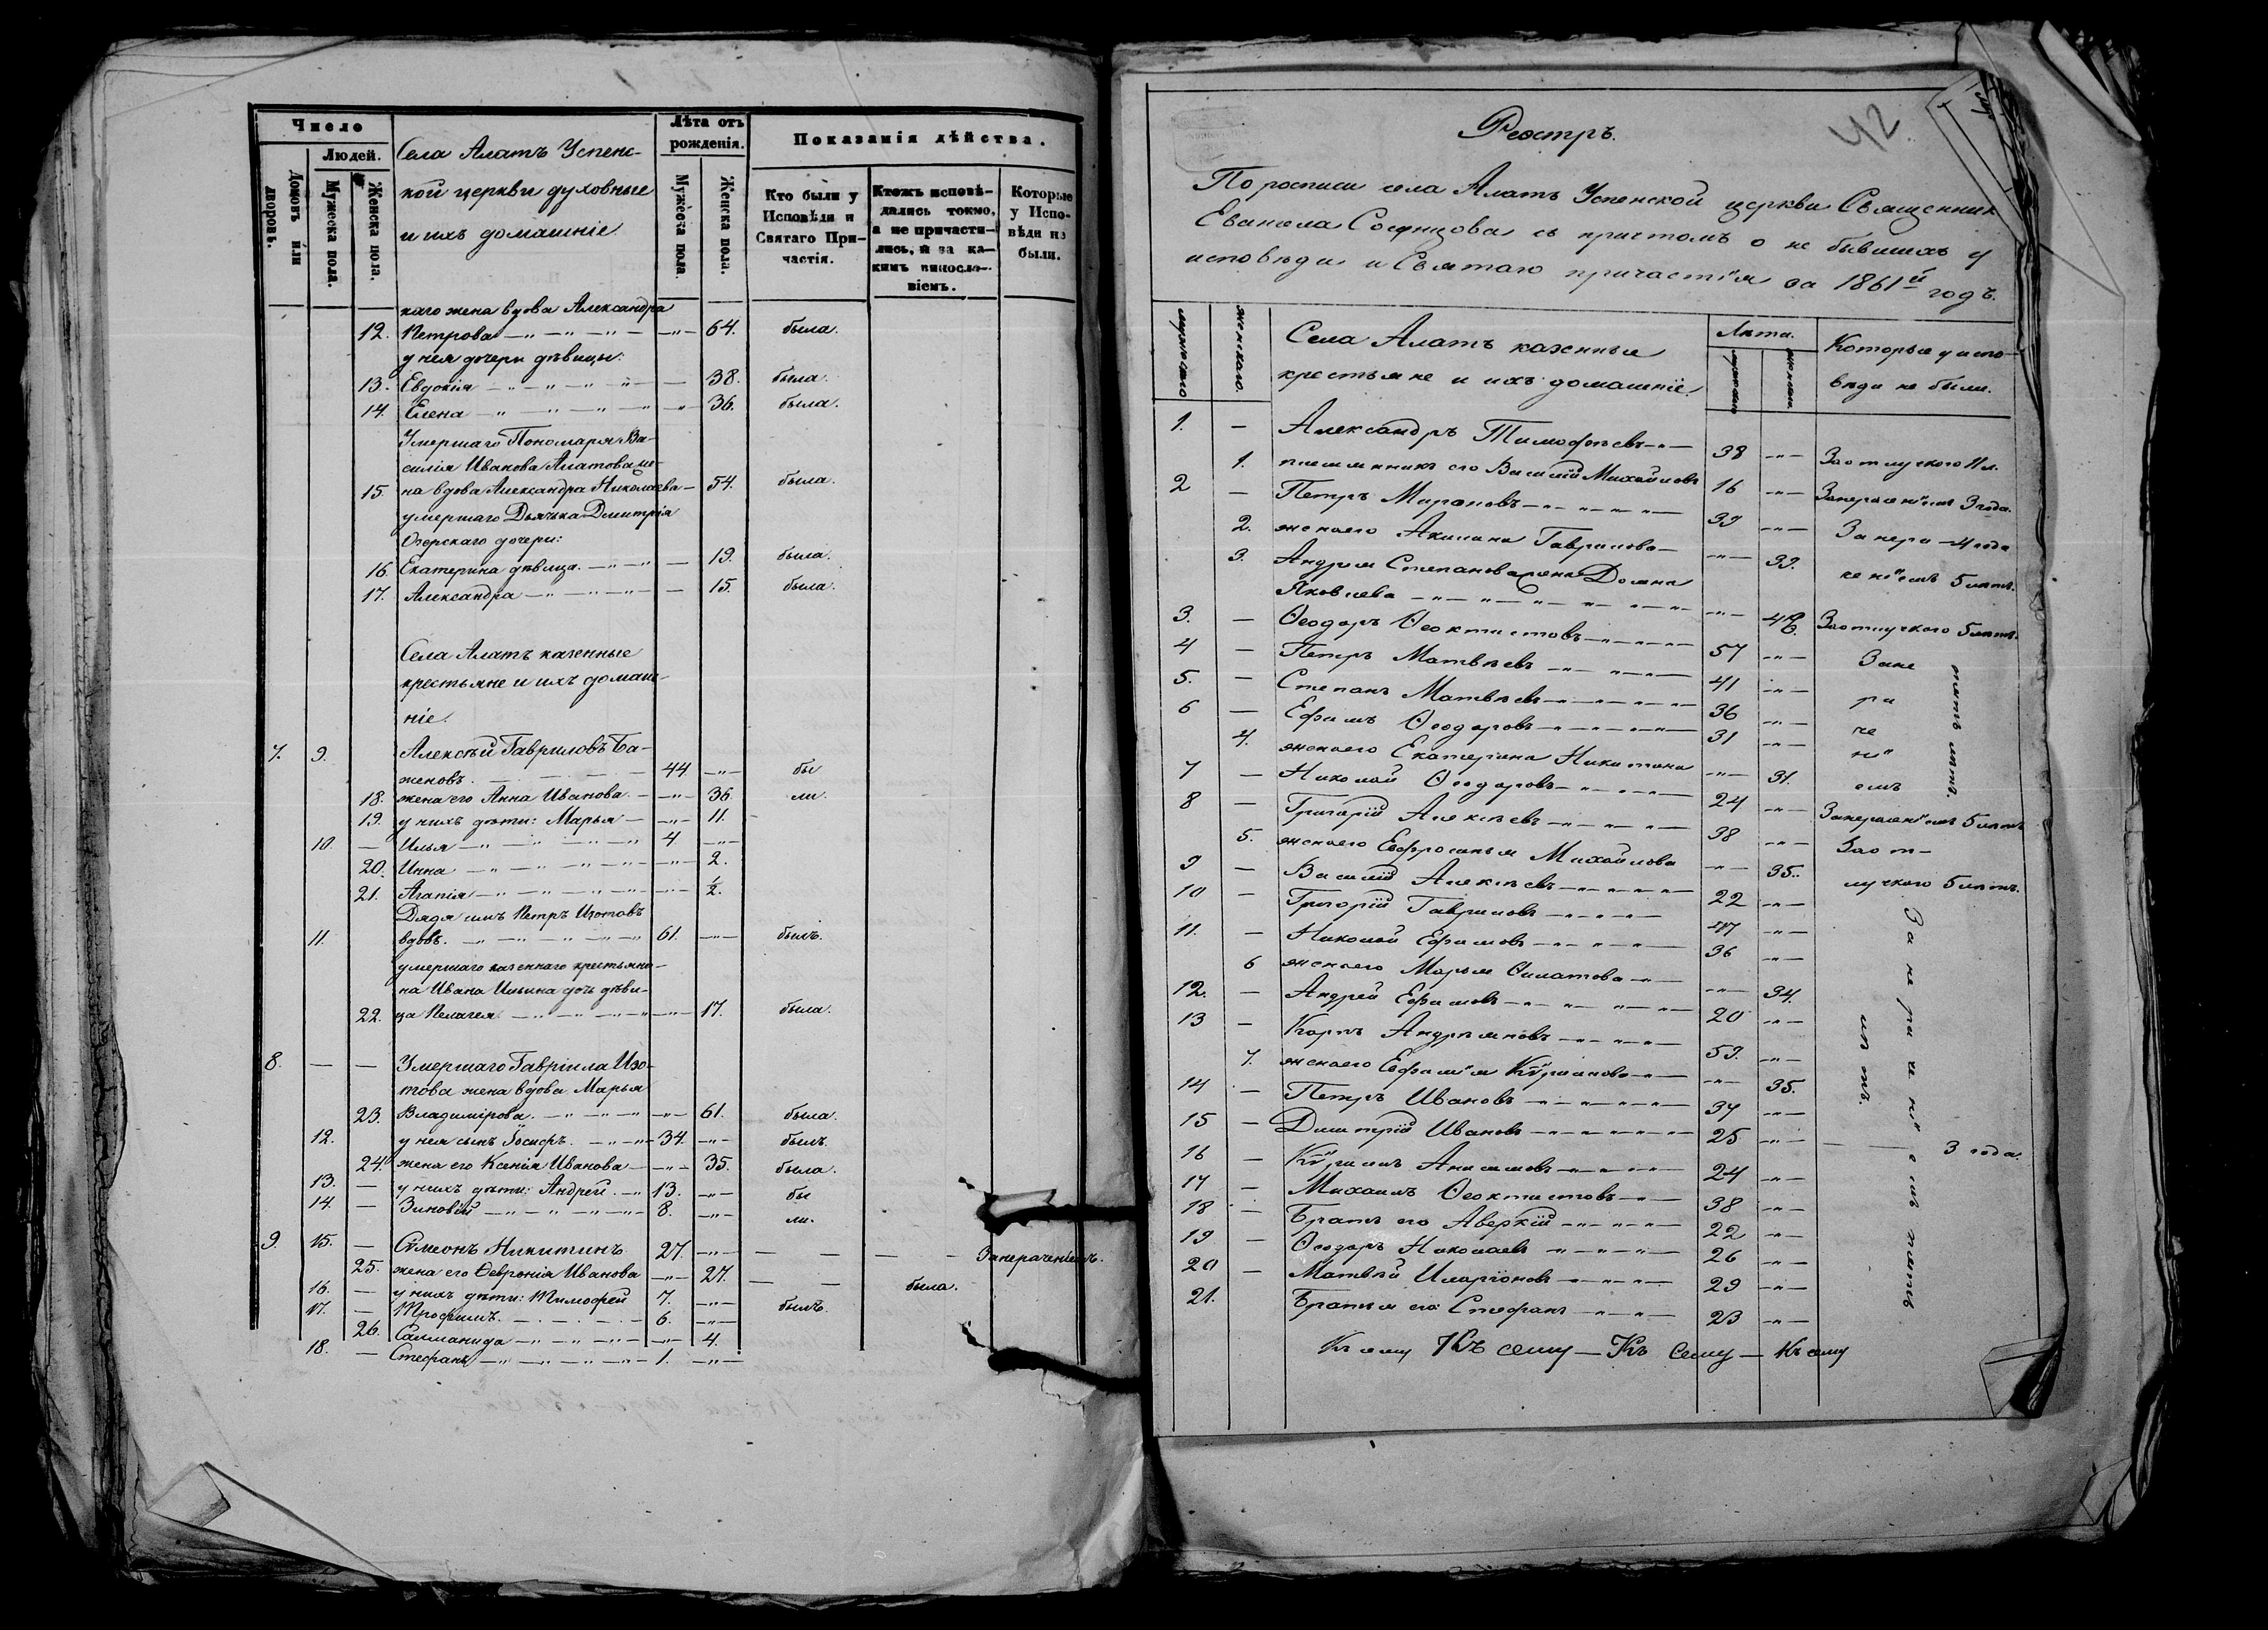 Число
Людей.
Домовъ или дворовъ.
Мужеска пола.
Женска пола.
Села Алатъ Успенс-
кой церкви духовные
и ихъ домашніе
Лѣта отъ рожденія.
Мужеска пола.
Женска пола.
Показанія дѣйства.
Кто были у Исповѣди и Святаго Причастія.
Ктожъ исповѣ-
дались токмо,
а не причасти-
лись, и за ка-
кимъ винословіемъ.
Которые
у Испо-
вѣди не
были.
каго жена вдова Александра
12. Петрова — 64. была.
у нея дочери дѣвицы:
13. Евдокія — 38. была.
14. Елена — 36. была.
Умершаго Пономаря Ва-
силія Иванова Алатова же-
15. на вдова Александра Николаева — 54. была.
умершаго Дьячка Дмитрія
Озерскаго дочери:
16. Екатерина дѣвица — 19. была.
17. Александра — 15. была.
Села Алатъ казенные
крестьяне и ихъ домаш-
ніе.
7. 9. Алексѣй Гавриловъ Ба-
женовъ. 44 — бы
18. жена его Анна Иванова — 36. ли.
19. у нихъ дѣти: Марья — 11.
10. — Илья — 4 —
20. Инна — 2.
21. Агапія — ½.
Дядя имъ Петръ Изотовъ
11. вдовъ. 61. — былъ.
умершаго казеннаго крестьяни-
на Ивана Ильина дочь дѣви-
22. ца Пелагея — 17. была.
8. — — Умершаго Гавріила Изо-
това жена вдова Марья
23. Владимірова. — 61. была.
12. у нея сынъ Іосифъ. 34. — былъ.
24. жена его Ксенія Иванова — 35. была.
13. — у нихъ дѣти: Андрей. 13. — бы
14. — Зиновій — 8. — ли.
9. 15. — Сѵмеонъ Никитинъ 27. — Занераченіемъ.
25. жена его Ѳевронія Иванова — 27. — была.
16. — у нихъ дѣти: Тимофей 7. — былъ.
17. — Трофимъ. 6. —
26. Саломанида — 4.
18. — Стефанъ — 1. —
42
Реэстръ.
По росписи села Алатъ Успенской церкви Священника
Евангела Софнцова съ причтомъ о не бывшихъ у
исповѣди и Святаго причастія за 1861й годъ.
мужескаго
женскаго.
Села Алатъ казенные
крестьяне и ихъ домашніе.
Лѣта.
Которые у испо-
вѣди не были.
1. — Александръ Тимофѣевъ — 38 — За отлучкою 11 л.
1. племянникъ его Василій Михайловъ 16 — Занераченіемъ 3 года.
2 — Петръ Мироновъ — 39 — За нера — 4 года
2. жена его Акилина Гаврилова — 39. ченіемъ 5 лѣтъ.
3. Андрея Степанова жена Домна
Яковлева — За отлучкою 5 лѣтъ.
3. — Ѳеодоръ Ѳеоктистовъ — 57 — Зане
4 — Петръ Матвѣевъ — 41 — ра
5. — Степанъ Матвѣевъ — 36 — че
6 — Ефимъ Ѳеодоровъ — 31 — ні
4. жена его Екатерина Никитина — 31. емъ
пять лѣтъ.
7 — Николай Ѳеодоровъ — 24 — Занераченіемъ 5 лѣтъ
8 — Григорій Алексѣевъ — 38 — За от-
5. жена его Евфросинья Михайлова — 35. лучкою 5 лѣтъ.
9 — Василій Алексѣевъ — 22 —
10 — Григорій Гавриловъ —
11. — Николай Ефимовъ — 36 —
6 жена его Марья Филатова — 34.
12. — Андрей Ефимовъ — 20 —
13 — Карпъ Андреяновъ — 59. —
7. жена его Евфимія — 35.
14 — Петръ Ивановъ — 37 —
15 — Димитрій Ивановъ — 25 — 3 года.
16 — Кѵрилъ Анисимовъ — 24 —
17 — Михаилъ Ѳеоктистовъ — 38 —
18 — Братъ его Аверкій — 22 —
19 — Ѳеодоръ Николаевъ — 26 —
20 — Матвѣй Иларіоновъ — 29 —
21. Братья его: Стефанъ — 23 —
Занераченіемъ пять
лѣтъ.
Къ сему Къ сему — Къ Сему — Къ сему